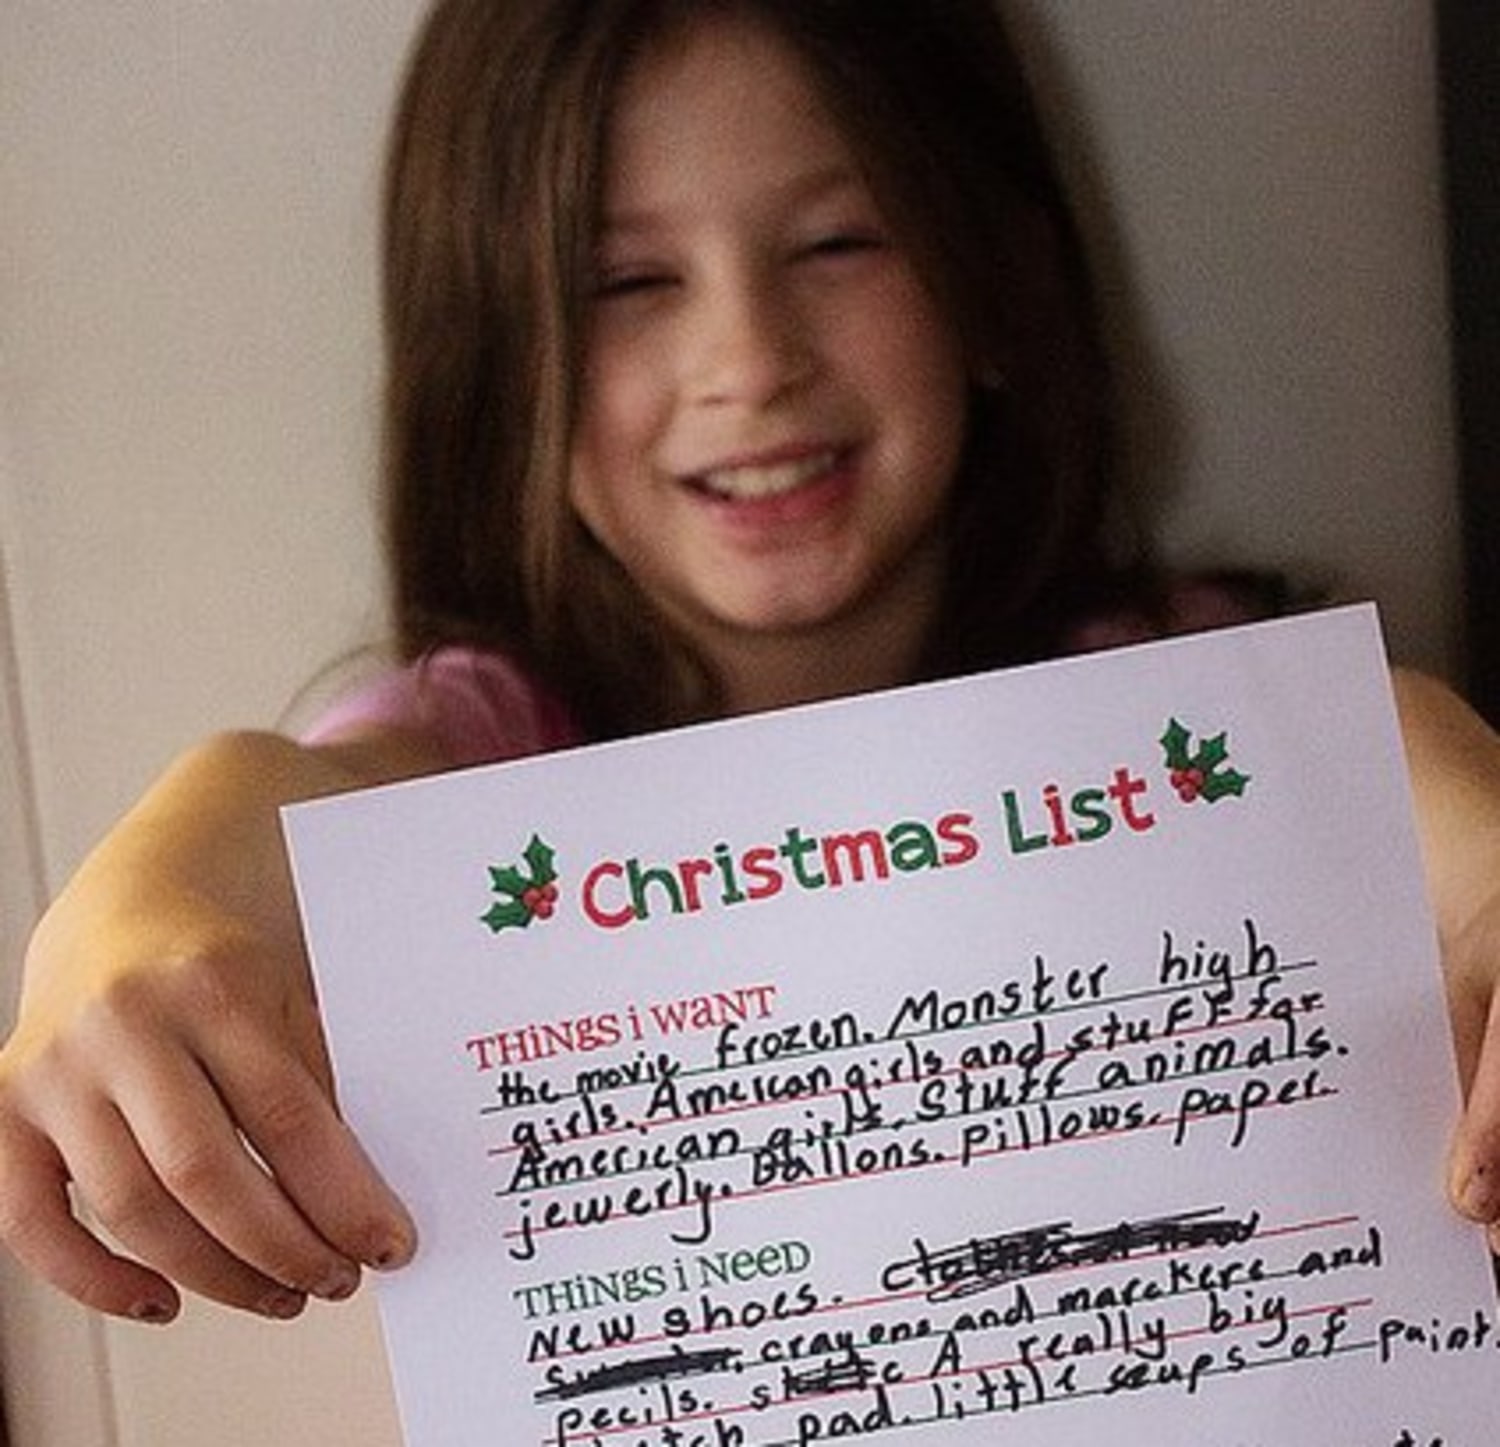 Christmas List
THiNgs i waNT
the movie frozen. Monster high
girls. Ameican girls and stuff for
American girls. Stuff animals.
jewerly. Ballons. pillows. paper.
THiNgs i Need
New shoes.
crayens and marckers and
pecils. A really big
pad. little scups of paint.